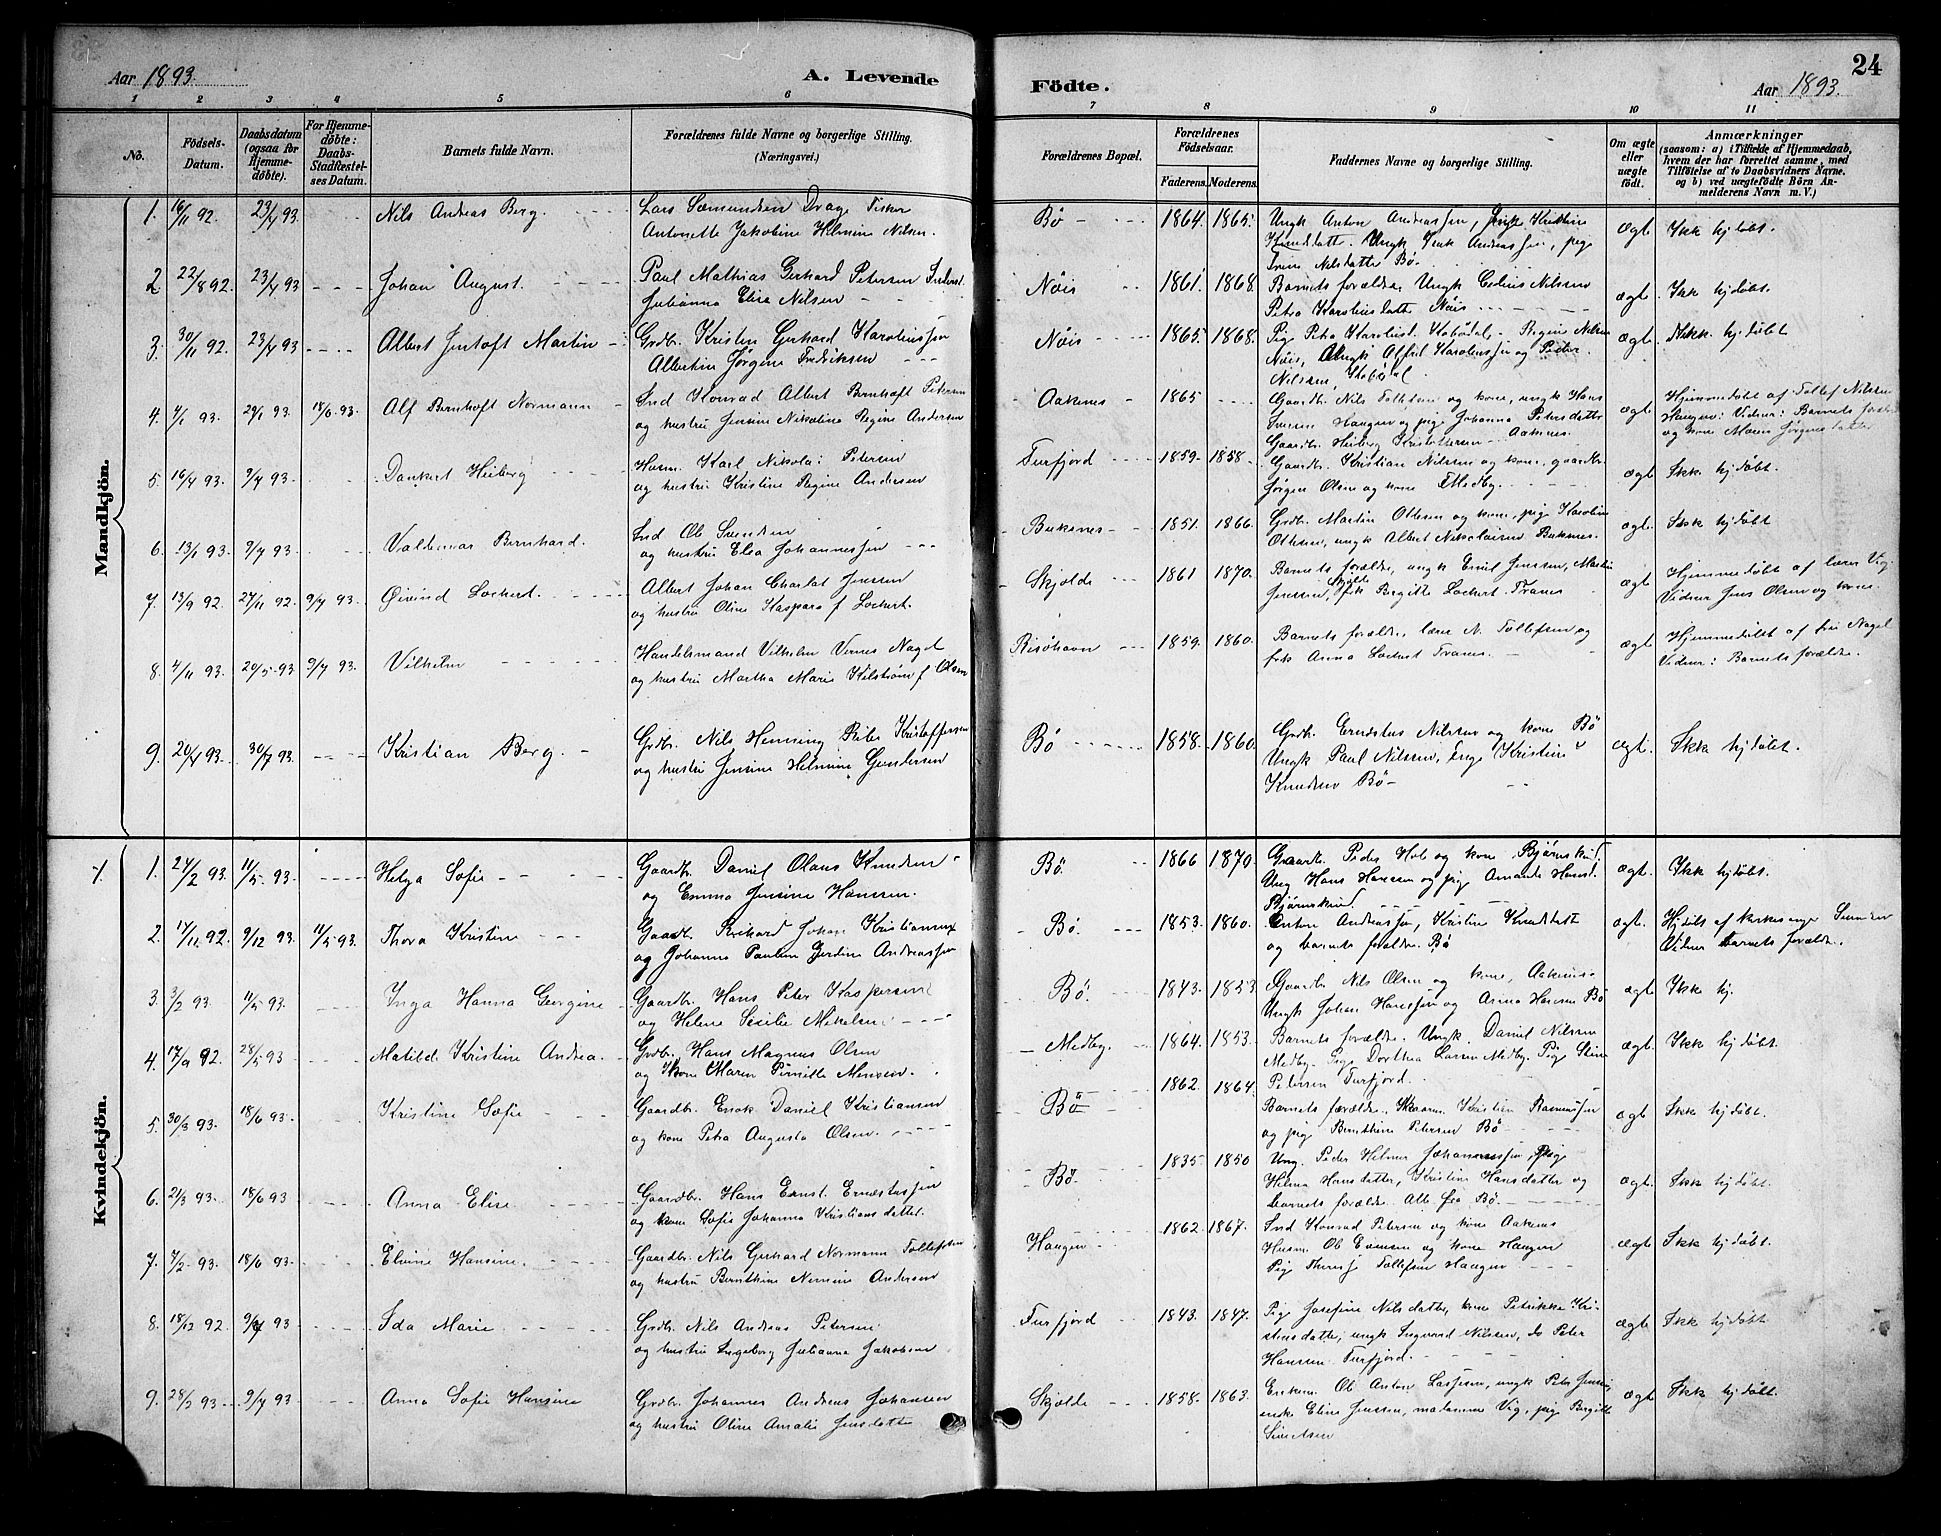 Aar 1893. A. Levende
Födte. Aar 1893. 24
1 2 3 4 5 6
7 8 9 10 11
No.
Födsels-
Datum.
Daabsdatum
(ogsaa for
Hjemme-
döbte).
For Hjemme-
döbte:
Daabs-
Stadfæstel-
ses Datum.
Barnets fulde Navn.
Forældrenes fulde Navne og borgerlige Stilling.
(Næringsvei.)
Forældrenes Bopæl.
Forældrenes
Födselsaar.
Faderens. Moderens.
Faddernes Navne og borgerlige Stilling.
Om ægte
eller
uægte
födt.
Anmærkninger
(saasom: a) i Tilfælde af Hjemmedaab,
hvem der har forrettet samme, med
Tilföielse af to Daabsvidners Navne,
og b) ved uægtefödte Börn An-
melderens Navn m. V.)
Mandkjön.
1. 16/11 92. 23/4 93 Nils Andreas Berg. Lars Sæmundsen Drage Fisker
Antonette Jakobine Helmine Nilsen.
Bø 1864. 1865. Ungk Anton Andreassen, Pige Kristine
Knudsdatter. Ungk Isak Andreassen, pige
Trine Nilsdatter Bø.
ægt. Ikk hjdøbt.
2 22/8 92. 23/4 93 Johan August. Paul Mathias Gerhard Petersen Inderst
Julianna Elise Nilsen
Nöis 1861. 1868. Barnets forældre Ungk Edius Nilsen
Petra Karoliusdatter Nöis
ægt. Ikk hjdøbt.
3. 30/11 92. 23/4 93 Albert Jentoft Martin Grdb. Kristen Gerhard Karoliussen
Albertine Jørgine Fredriksen
Nöis 1865. 1868. Pig Petra Karolius Stobødal. Regine Nilsen
Nöis, Ungk Alfred Karoliussen og Peder
Nilssen, Stobødal
ægt. Ikk. hjdøbt
4. 4/1 93. 29/1 93. 18/6 93. Alf Bernhoft Normann Ind Konrad Albert Bernhoft Petersen
og hustru Jensine Nikoline Regine Andersen
Aaknes 1865 Gaardbr. Nils Tollefsen og kone, ungk Hans
Iversen Haugen og pige Johanna Petersdatter
Gaardbr. Heiberg Kristoffersen Aaknes.
ægt Hjemmedøbt af Tollef Nilsen
Haugen: Vidner: Barnets forældre
og kone Maren Jørgensdatter
5. 16/4 93. 9/7 93. Dankert Heiberg Husm. Karl Nikolai Petersen
og hustru Kristine Regine Andersen
Furfjord 1859. 1858. Gaardbr. Kristian Nilssen og kone, gaardbr.
Jørgen Olsen og kone Medby.
ægt Ikk hjdøbt.
6. 13/1 93. 9/7 93. Valdemar Bernhard. Ind Ole Svendsen
og hustru Elea Johannessen
Buksnes 1851. 1866. Grdb. Martin Othesen og kone, pige Karoline
Othesen, ungk Albert Nikolaisen Buksnes.
ægt. Ikk hjdøbt
7. 13/9 92. 27/11 92. 9/7 93. Øivind Lockert. Albert Johan Charlot Jenssen
og hustru Oline Kaspara f Lockert.
Skjolde 1861 1870. Barnets forældre, ungk Emil Jenssen, Martin
Jenssen, Skjolde frk Birgitte Lockert Tranes
ægt Hjemmedøbt af lærer Vig
Vidner Jens Olsen og kone.
8. 4/11 93. 20/5 93 9/7 93. Vilhelm Handelsmand Vilhelm Vernes Nagel
og hustru Martha Marie Kilstrøm f Olsen
Risøhavn 1859. 1860. Barnets forældre, lærer N. Tollefsen og
frk Anna Lockert Tranes.
ægt. Hjemmedøbt af fru Nagel
Vidner: Barnets forældre.
9. 20/4 93. 30/7 93. Kristian Berg. Grdbr. Nils Henning Ribe Kristoffersen
og hustru Jensine Helmine Gundersen
Bø 1858. 1860. Grdb. Erndstus Nilssen og kone Bø
Ungk Paul Nilssen, Pige Kristine
Knudsen Bø
ægt. Ikk hjdøbt.
Kvindekjön.
1. 24/2 93. 11/5 93. Helga Sofie Gaardb. Daniel Olaus Knudsen
og Emma Jensine Hansen.
Bø. 1866 1870. Gaardb. Peder Hob og kone Bjørnskind
Ung Hans Hansen og pige Amanda Hans.
Bjørnskind
ægt. Ikk hjdøbt.
2. 17/11 92. 9/12 93. 11/5 93. Thora Kristine Gaardb. Richard Johan Kristiansen
og Johanna Pauline Gerdine Andreassen
Bø. 1853. 1860. Anton Andreassen, Kristine Knudsdatt
og barnets forældre. Bø
ægt. Hjdøbt af kirkesanger Simonsen
Vidner Barnets forældre.
3. 3/2 93. 11/5 93. Inga Hanna Georgine Gaardbr. Hans Peter Kaspersen
og Helene Sesilie Mikelsen
Bø. 1843. 1853 Gaardbr Nils Olsen og kone, Aaknes.
Ungk Johan Hanssen og Anna Hansen Bø
ægt Ikk hj.
4. 17/9 92. 28/5 93 Matild. Kristine Andrea. Grdbr. Hans Magnus Olsen
og kone Maren Pernille Monsen.
Medby. 1864. 1853. Barnets forældre. Ungk. Daniel Nilssen
Medby. Pige Dorthea Larsen Medby. Pige Stine
Petersen Furfjord.
ægt. Ikk hjdøbt.
5. 30/3 93. 18/6 93. Kristine Sofie Gaardbr. Enok Daniel Kristiansen
og kone Petra Augusta Olsen.
Bø 1862. 1864. Barnets forældre. Kristen Rasmussen
og pige Bernthine Petersen Bø
ægt Ikk hjdøbt.
6. 21/3 93. 18/6 93 Anna Elise Gaardbr. Hans Ernst Ernestussen
og kone Sofie Johanna Kristiansdatter.
Bø. 1835. 1850 Ung. Peder Helmer Johannessen, Pige
Helma Hansdatter, Kristine Hansdatter og
barnets forældre. Alle fra Bø.
ægt. Ikk hjdøbt.
7. 7/2 93. 18/6 93. Elvine Hansine. Gaardbr. Nils Gerhard Normann Tollefsen
og hustru Bernthine Nimine Andersen
Haugen 1862. 1867. Ind Konrad Petersen og kone Aaknes
Husm Ole Evensen og kone Haugen
Pige Theresie Tollefsen Haugen
ægt Ikk hjdøbt.
8. 18/12 92. 9/7 93 Ida Marie Grdbr. Nils Andreas Petersen.
og hustru Ingeborg Julianna Jakobsen
Furfjord 1843. 1847. Pige Josefine Nilsdatter, kone Petrikke Kri-
stensdatter, ungk Ingvard Nilssen, do Peter
Hansen. Furfjord.
ægt. Ikk hjdøbt.
9. 28/2 93 9/7 93 Anna Sofie Hansine Grdbr. Johannes Andreas Johansen
og hustru Oline Amalie Jensdatter
Skjolde 1858. 1863. Enkem. Ole Anton Lassesen, ungk Peter Jenssen,
enke Eline Jenssen, madamme Vig, pige Birgitte
Sivertsen
ægt Ikk hjdøbt.